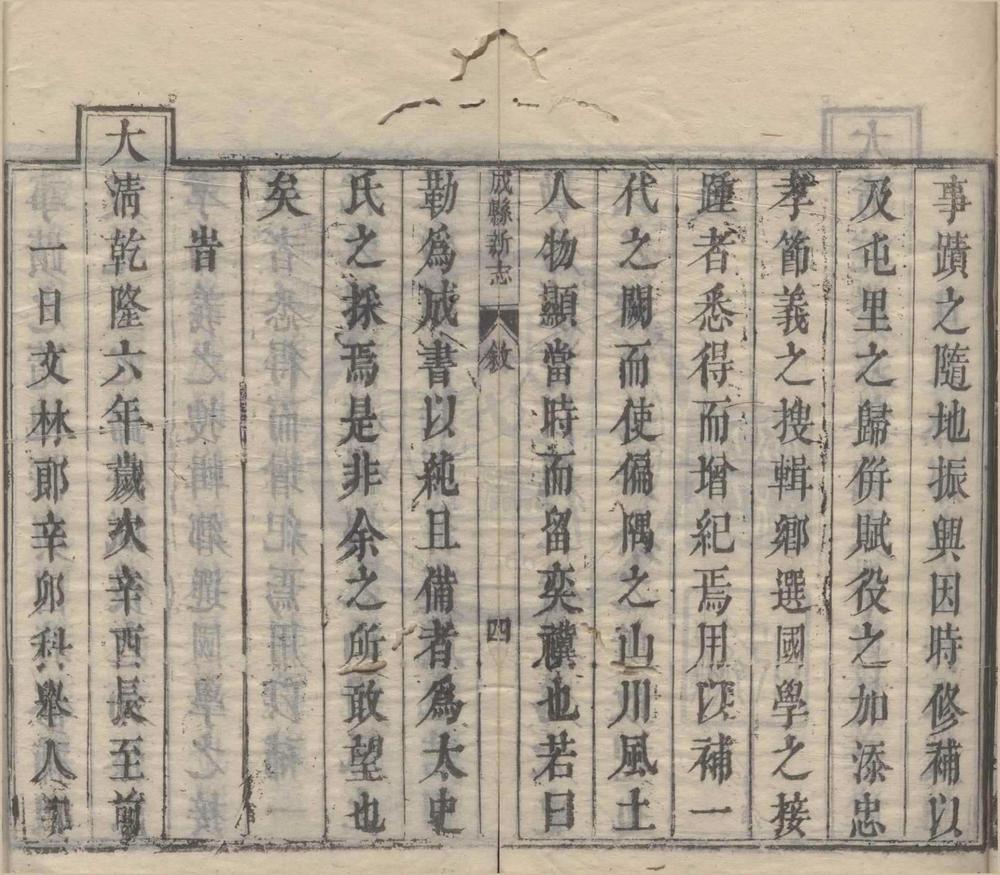 事蹟之隨地振興因時修補以
及屯里之歸併賦役之加添忠
孝節義之搜輯鄉選國學之接
踵者悉得而增紀焉用以補一
代之闕而使偏隅之山川風土
人物顯當時而留奕禩也若曰
成縣新志 敘 四
勒為成書以純且備者為太史
氏之採焉是非余之所敢望也
矣
旹
大清乾隆六年歲次辛酉長至前
一日文林郎辛卯科舉人